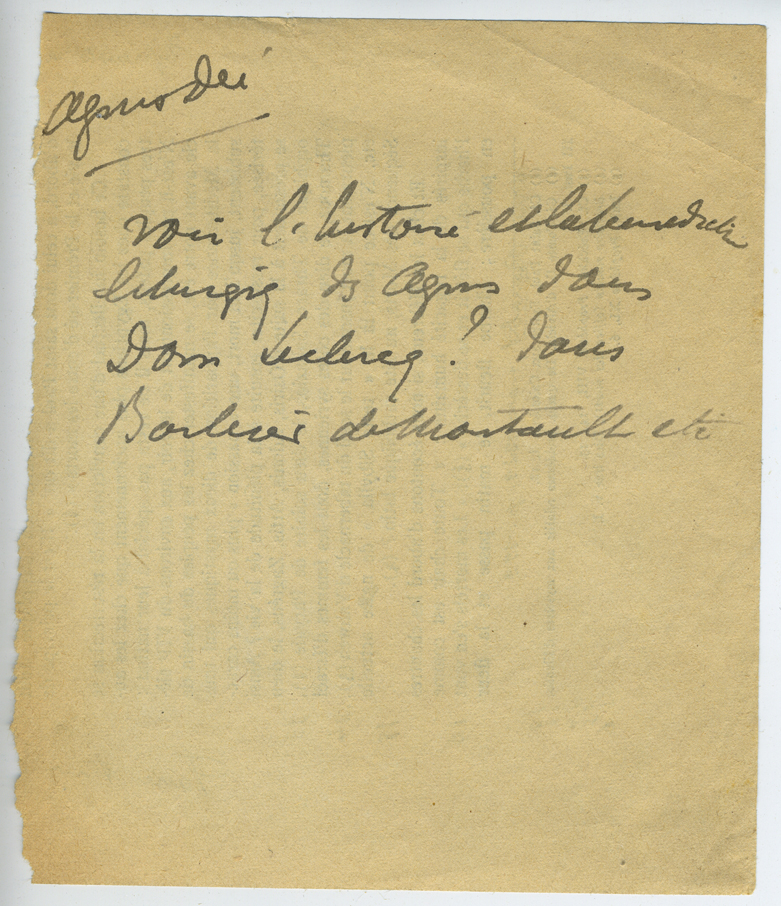 Agnus Dei
voir l'histoire et la benediction
liturgiq ds Agnus dans
Dom Leclercq ? dans
Barbier de Montault etc